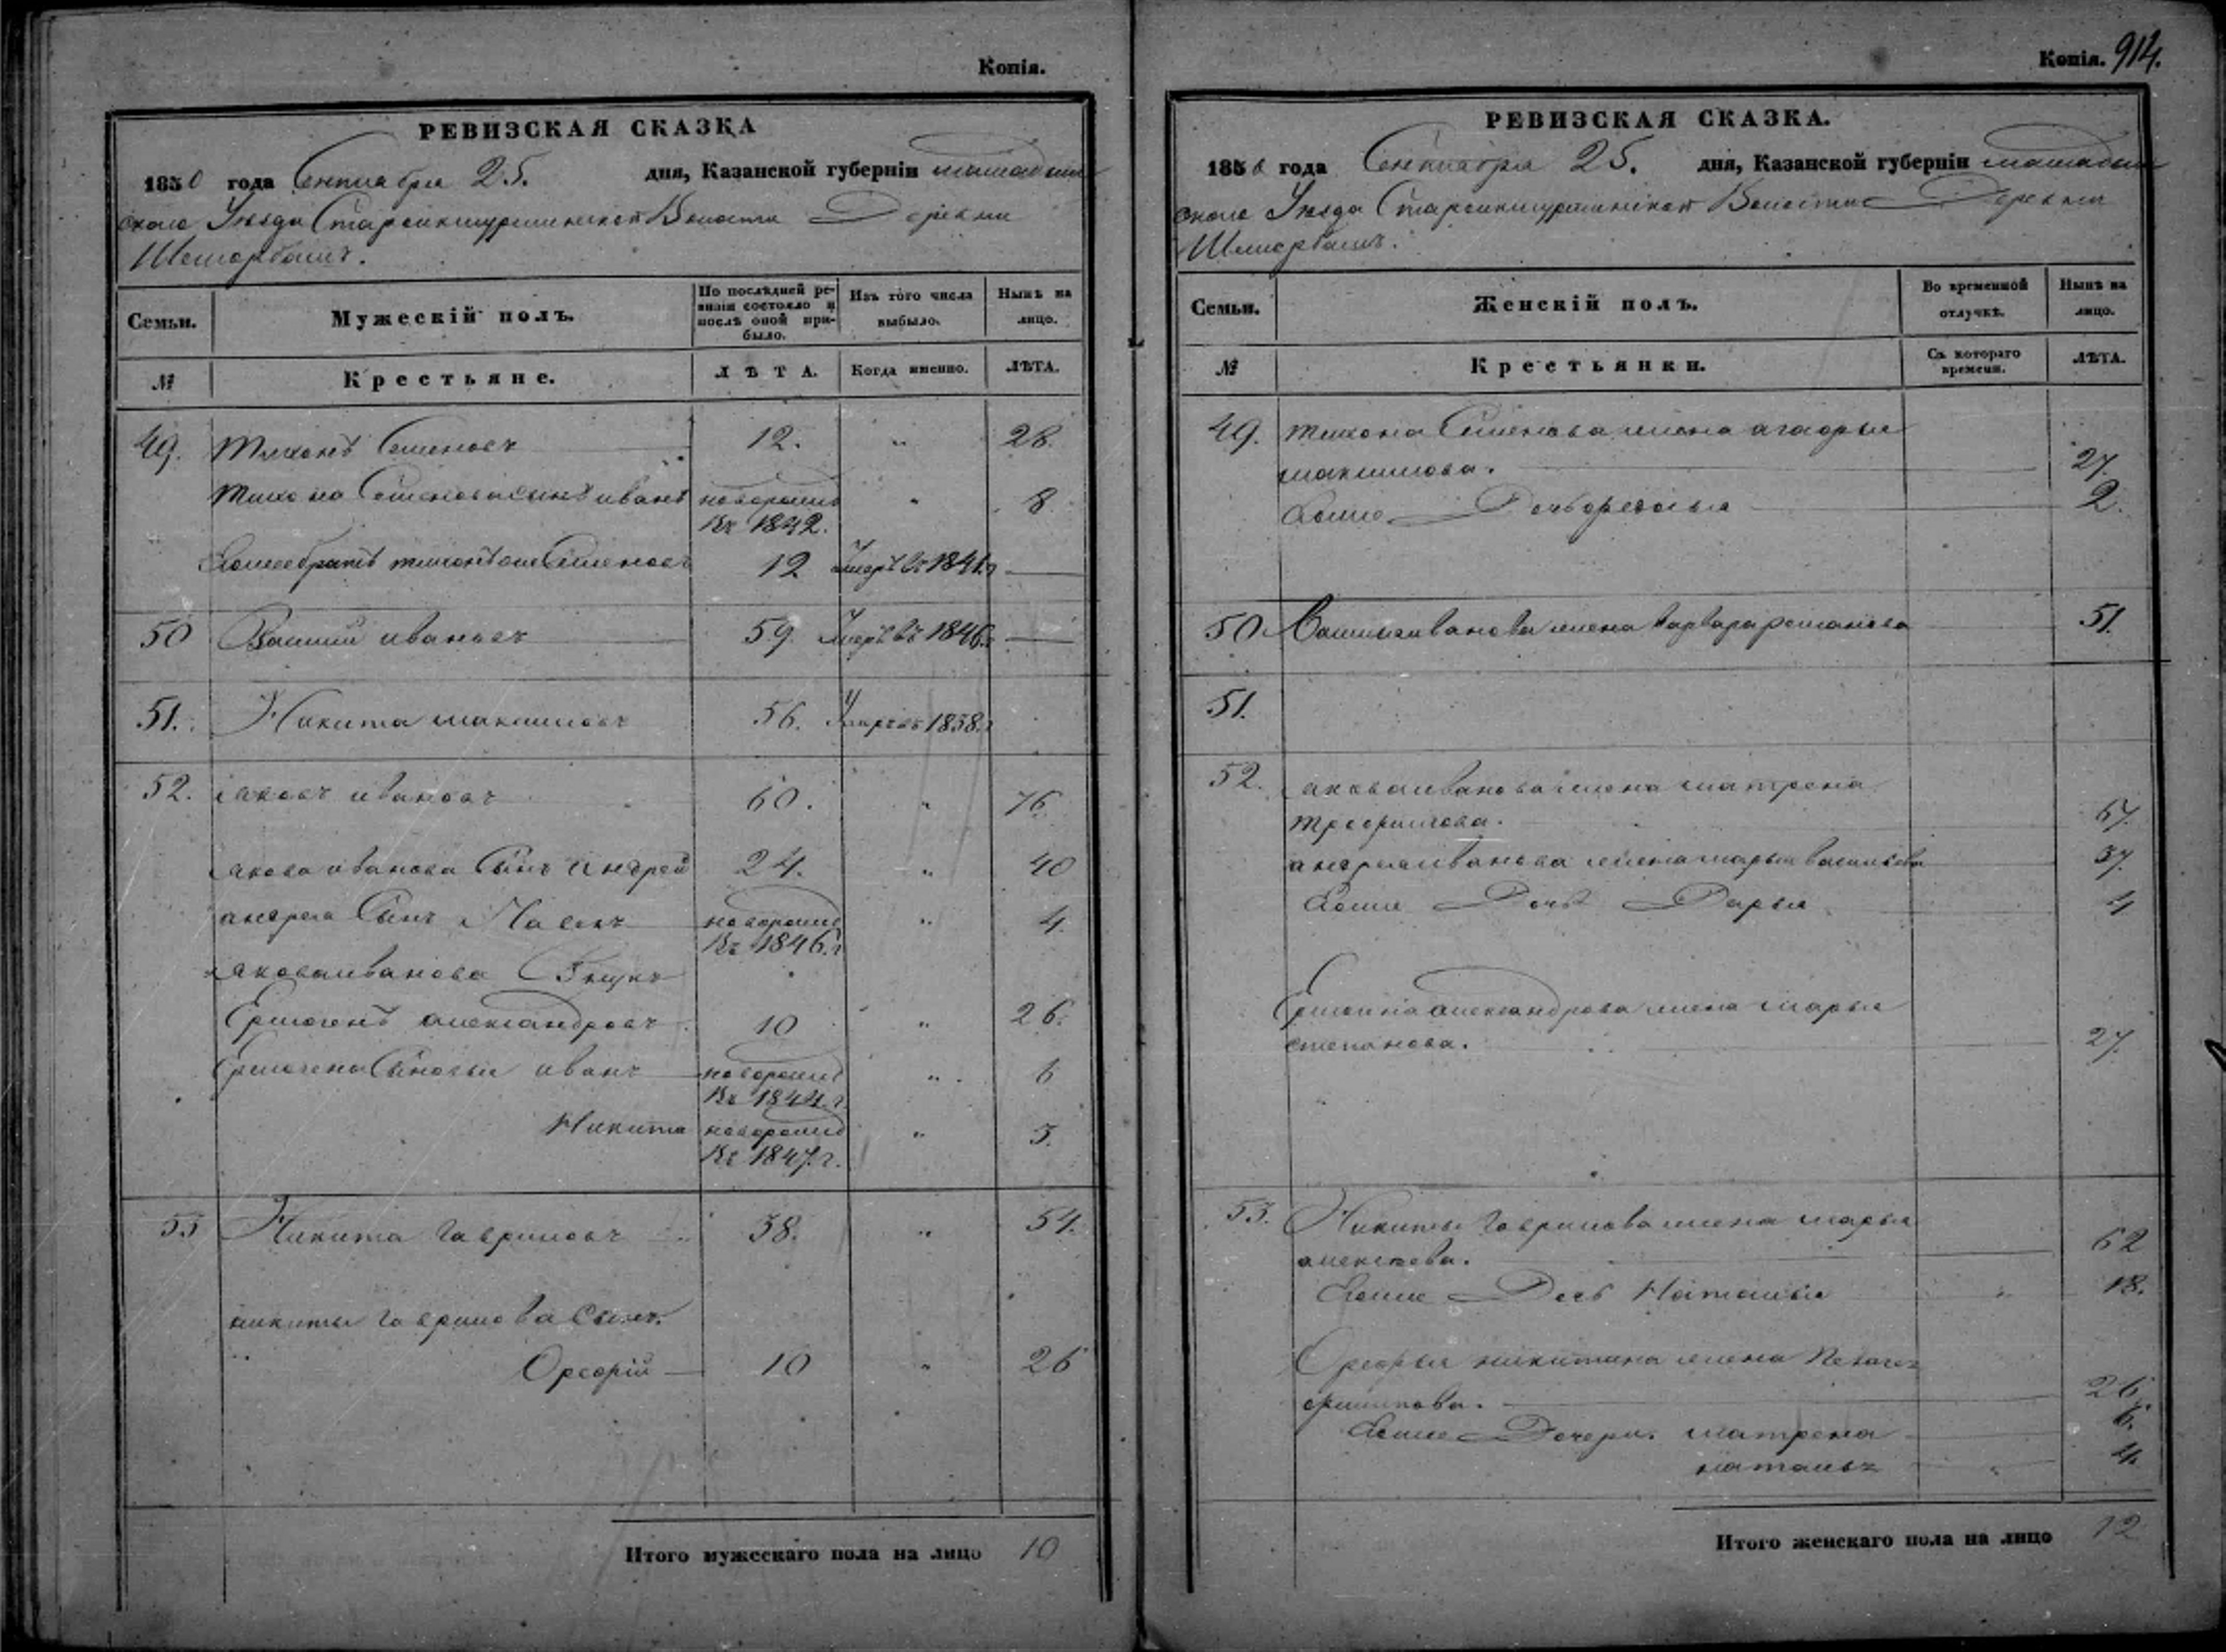 Копія.
РЕВИЗСКАЯ СКАЗКА
1850 года Сентября 25. дня, Казанской губерніи мамадыш
скаго Уѣзда Старсикшурминской Волости Деревни
Шеморбашъ.
Семьи. Мужескій полъ. По послѣдней ре- Изъ того числа Нынѣ на
визіи состояло и выбыло. лицо.
послѣ оной при-
было.
№ Крестьяне. ЛѢТА. Когда именно. ЛѢТА.
49. Тихонъ Семеновъ 12. " 28.
Тихона Семенова сынъ иванъ новорожд " 8
Въ 1842.
Семеновъ 12 Умеръ въ 1841.г
50 Васили ивановъ 59. Умеръ въ 1846.г
51. Никита максимовъ 56. Умеръ въ 1838.г
52. яковъ ивановъ 60. " 76.
якова иванова Сынъ андрей 24. " 40
андрея Сынъ Павелъ новорожд " 4.
Въ 1846.г
якова иванова Внукъ
Ермогенъ александровъ 10 " 26.
Ермогена Сыновья иванъ новорожд " 6
Въ 1844.г.
Никита новорожд " 3.
Въ 1847.г.
53 Никита гавриловъ 38. " 54.
никиты гаврилова Сынъ.
" 10 " 26
Итого мужескаго пола на лицо 10
Копія. 914.
РЕВИЗСКАЯ СКАЗКА.
1850 года Сентября 25. дня, Казанской губерніи мамадыш
скаго Уѣзда Старсикшурминской Волости Деревни
Шеморбашъ.
Семьи. Женскій полъ. Во временной Нынѣ на
отлучкѣ. лицо.
№ Крестьянки. Съ котораго ЛѢТА.
времени.
49. тихона Семенова жена агафья
максимова. 27.
2.
50. Василья иванова жена варвара романова 51.
51.
52. якова иванова жена матрена
трофимова. 67.
андрея иванова жена марья васильева 37.
Ево же Дочь Дарья 4
Ермогена александрова жена марья
степанова. 27.
53. Никиты гаврилова жена марья
алексѣева. 62
Ево же Дочь Наталья " 18.
никитина жена
филипова. 26.
Ево же Дочери. матрена 6.
наталья " 4.
Итого женскаго пола на лицо 12